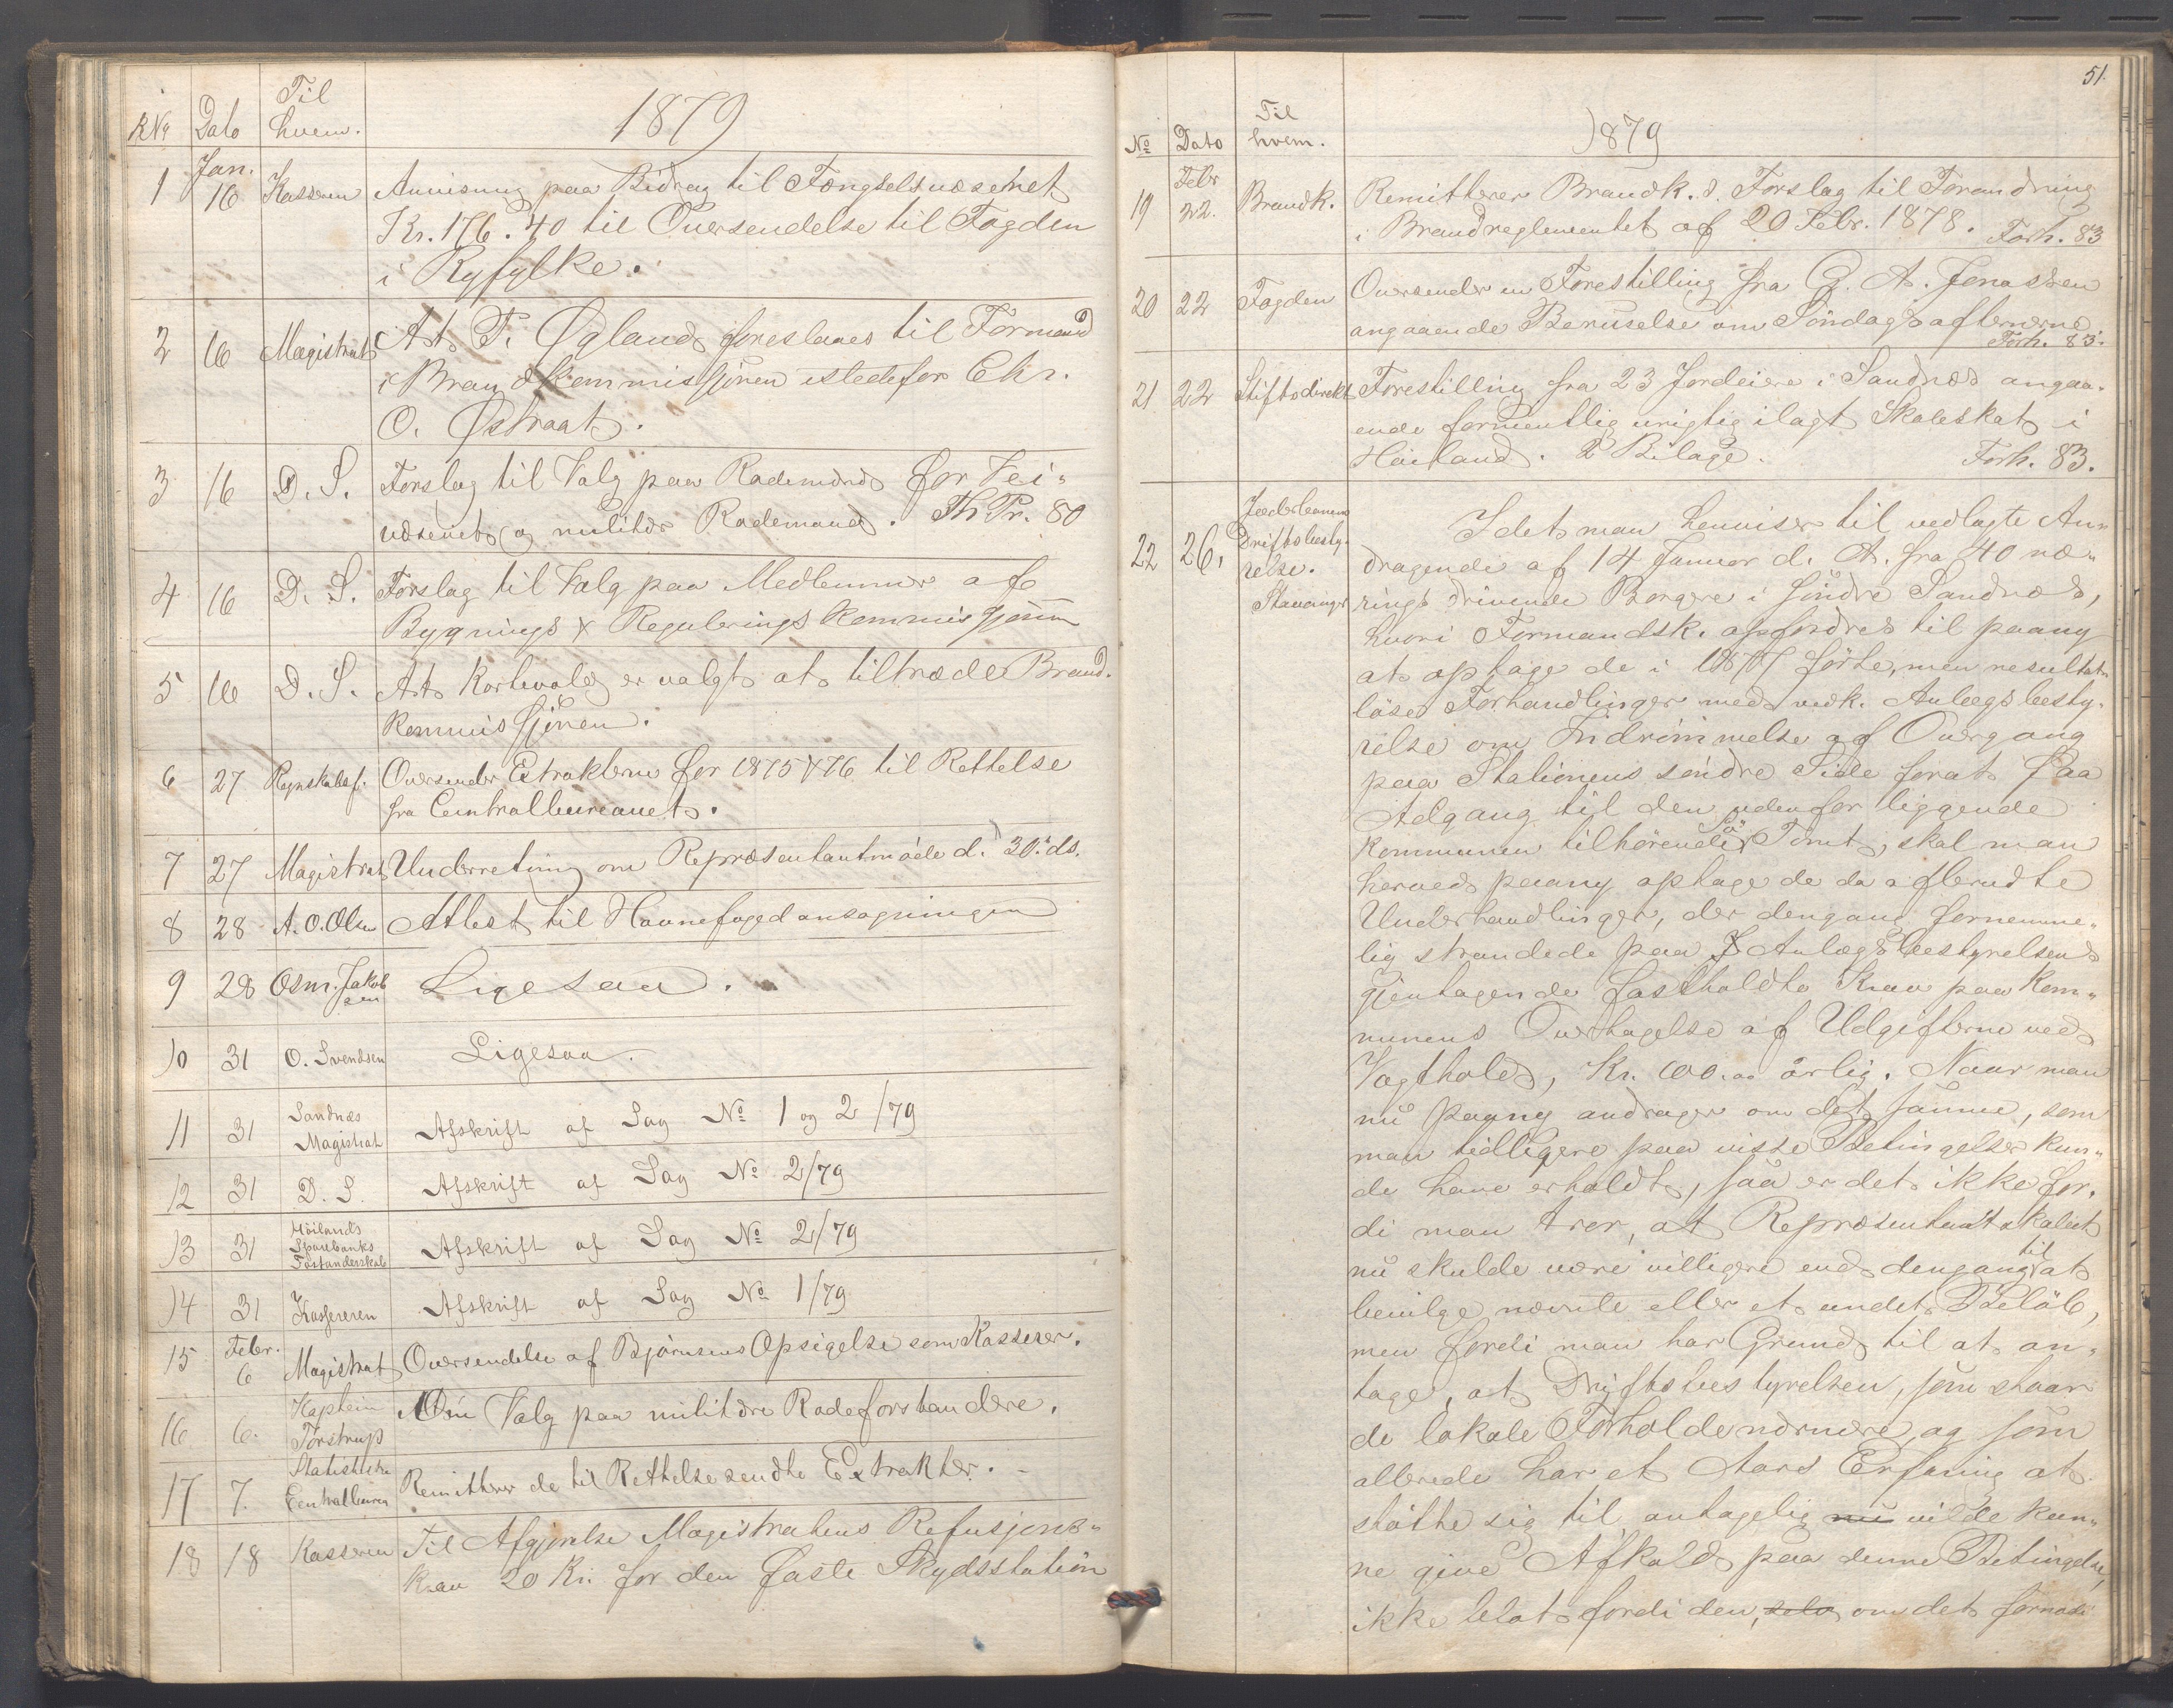 1879
No Dato Til hvem.
Jan.
1 16 Kasseren Anvisning paa Bidrag til Fængselsvæsenet
Kr. 176.40 til Oversendelse til Fogden
i Ryfylke.
2 16 Magistrat At T. Øgland foreslaaes til Formand
i Brandkommissjonen istedefor Chr.
O. Østraat.
3 16 D. S. Forslag til Valg paa Rodemænd for Vei-
væsenet og militær Rodemand. Fh. Pr. 80
4 16 D. S. Forslag til Valg paa Medlemmer af
Bygnings & Reguleringskommissjonen
5 16 D. S. At Kortevold er valgt at tiltræde Brand-
kommissjonen.
6 27 Regnskabsf. Oversender Extrakterne for 1875 & 76 til Rettelse
fra Centralbureauet.
7 27 Magistrat Underretning om Repræsentantmøde d. 30. ds.
8 28 A. O. Olsen Attest til Havnefogedansøgningen
9 28 Osm. Jakobsen Ligesaa.
10 31 O. Svendsen Ligesaa.
11 31 Sandnæs Magistrat Afskrift af Sag No 1 og 2/79
12 31 D. S. Afskrift af Sag No 2/79
13 31 Höilands Sparebanks Forstanderskab Afskrift af Sag No 2/79
14 31 Kassereren Afskrift af Sag No 1/79
Febr.
15 6 Magistrat Oversendelse af Bjørnsens Opsigelse som Kasserer.
16 6. Kaptein Torstrup Om Valg paa militære Rodeforstandere.
17 7. Statistiske Centralbureau Remitterer de til Rettelse sendte Extrakter.
18 18 Kasseren Til Afgjørelse Magistratens Refusjons-
krav 20 Kr. for den faste Skydsstation
51.
1879
No Dato Til hvem.
Febr
19 22. Brandk. Remitterer Brandk.s Forslag til Forandring
i Brandreglementet af 20 Febr. 1878. Forh. 83
20 22 Fogden Oversender en Forestilling fra G. A. Jonassen
angaaende Beruselse om Söndagsaftenerne.
Forh. 83.
21 22 Stiftsdirekt. Forestilling fra 23 Jordeiere i Sandnæs angaa-
ende formentlig urigtig ilagt Skoleskat i
Höiland. 2 Bilage. Forh. 83.
22 26. Jæderbanens Driftsbestyrelse. Stavanger
Idet man henviser til vedlagte An-
dragende af 14 Januar d. A. fra 40 næ-
ringsdrivende Borgere i söndre Sandnæs,
hvori Formandsk. opfordres til paany
at optage de i 1877 förte, men resultat-
löse Forhandlinger med vedk. Anlægsbesty-
relse om Indrömmelse af Overgang
paa Stationens söndre Side forat faa
Adgang til den udenfor liggende
kommunen tilhörende Sö Tomt, skal man
herved paany optage de da afbrudte
Underhandlinger, der dengang fornemme-
lig strandede paa Anlægsbestyrelsens
gjentagende fastholdte Krav paa Kom-
munens Overtagelse af Udgifterne ved
Vagthold, Kr. 600.00 årlig. Naar man
nu paany andrager om det samme, som
man tidligere paa visse Betingelser kun-
de have erholdt, saa er det ikke for-
di man tror, at Repræsentantskabet
nu skulde være villigere end dengang til at
bevilge nævnte eller et andet Belöb,
men fordi man har Grund til at an-
tage, at Driftsbestyrelsen, som staar
de lokale Forholde nærmere, og som
allerede har et Aars Erfaring at
stötte sig til antagelig nu vilde kun-
ne give Afkald paa denne Betingelse,
ikke blot fordi den, selv om det fornödi